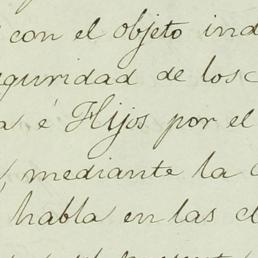 con el objeto ind
eguridad de los c
a é Hijos por el
mediante la
habla en las cl